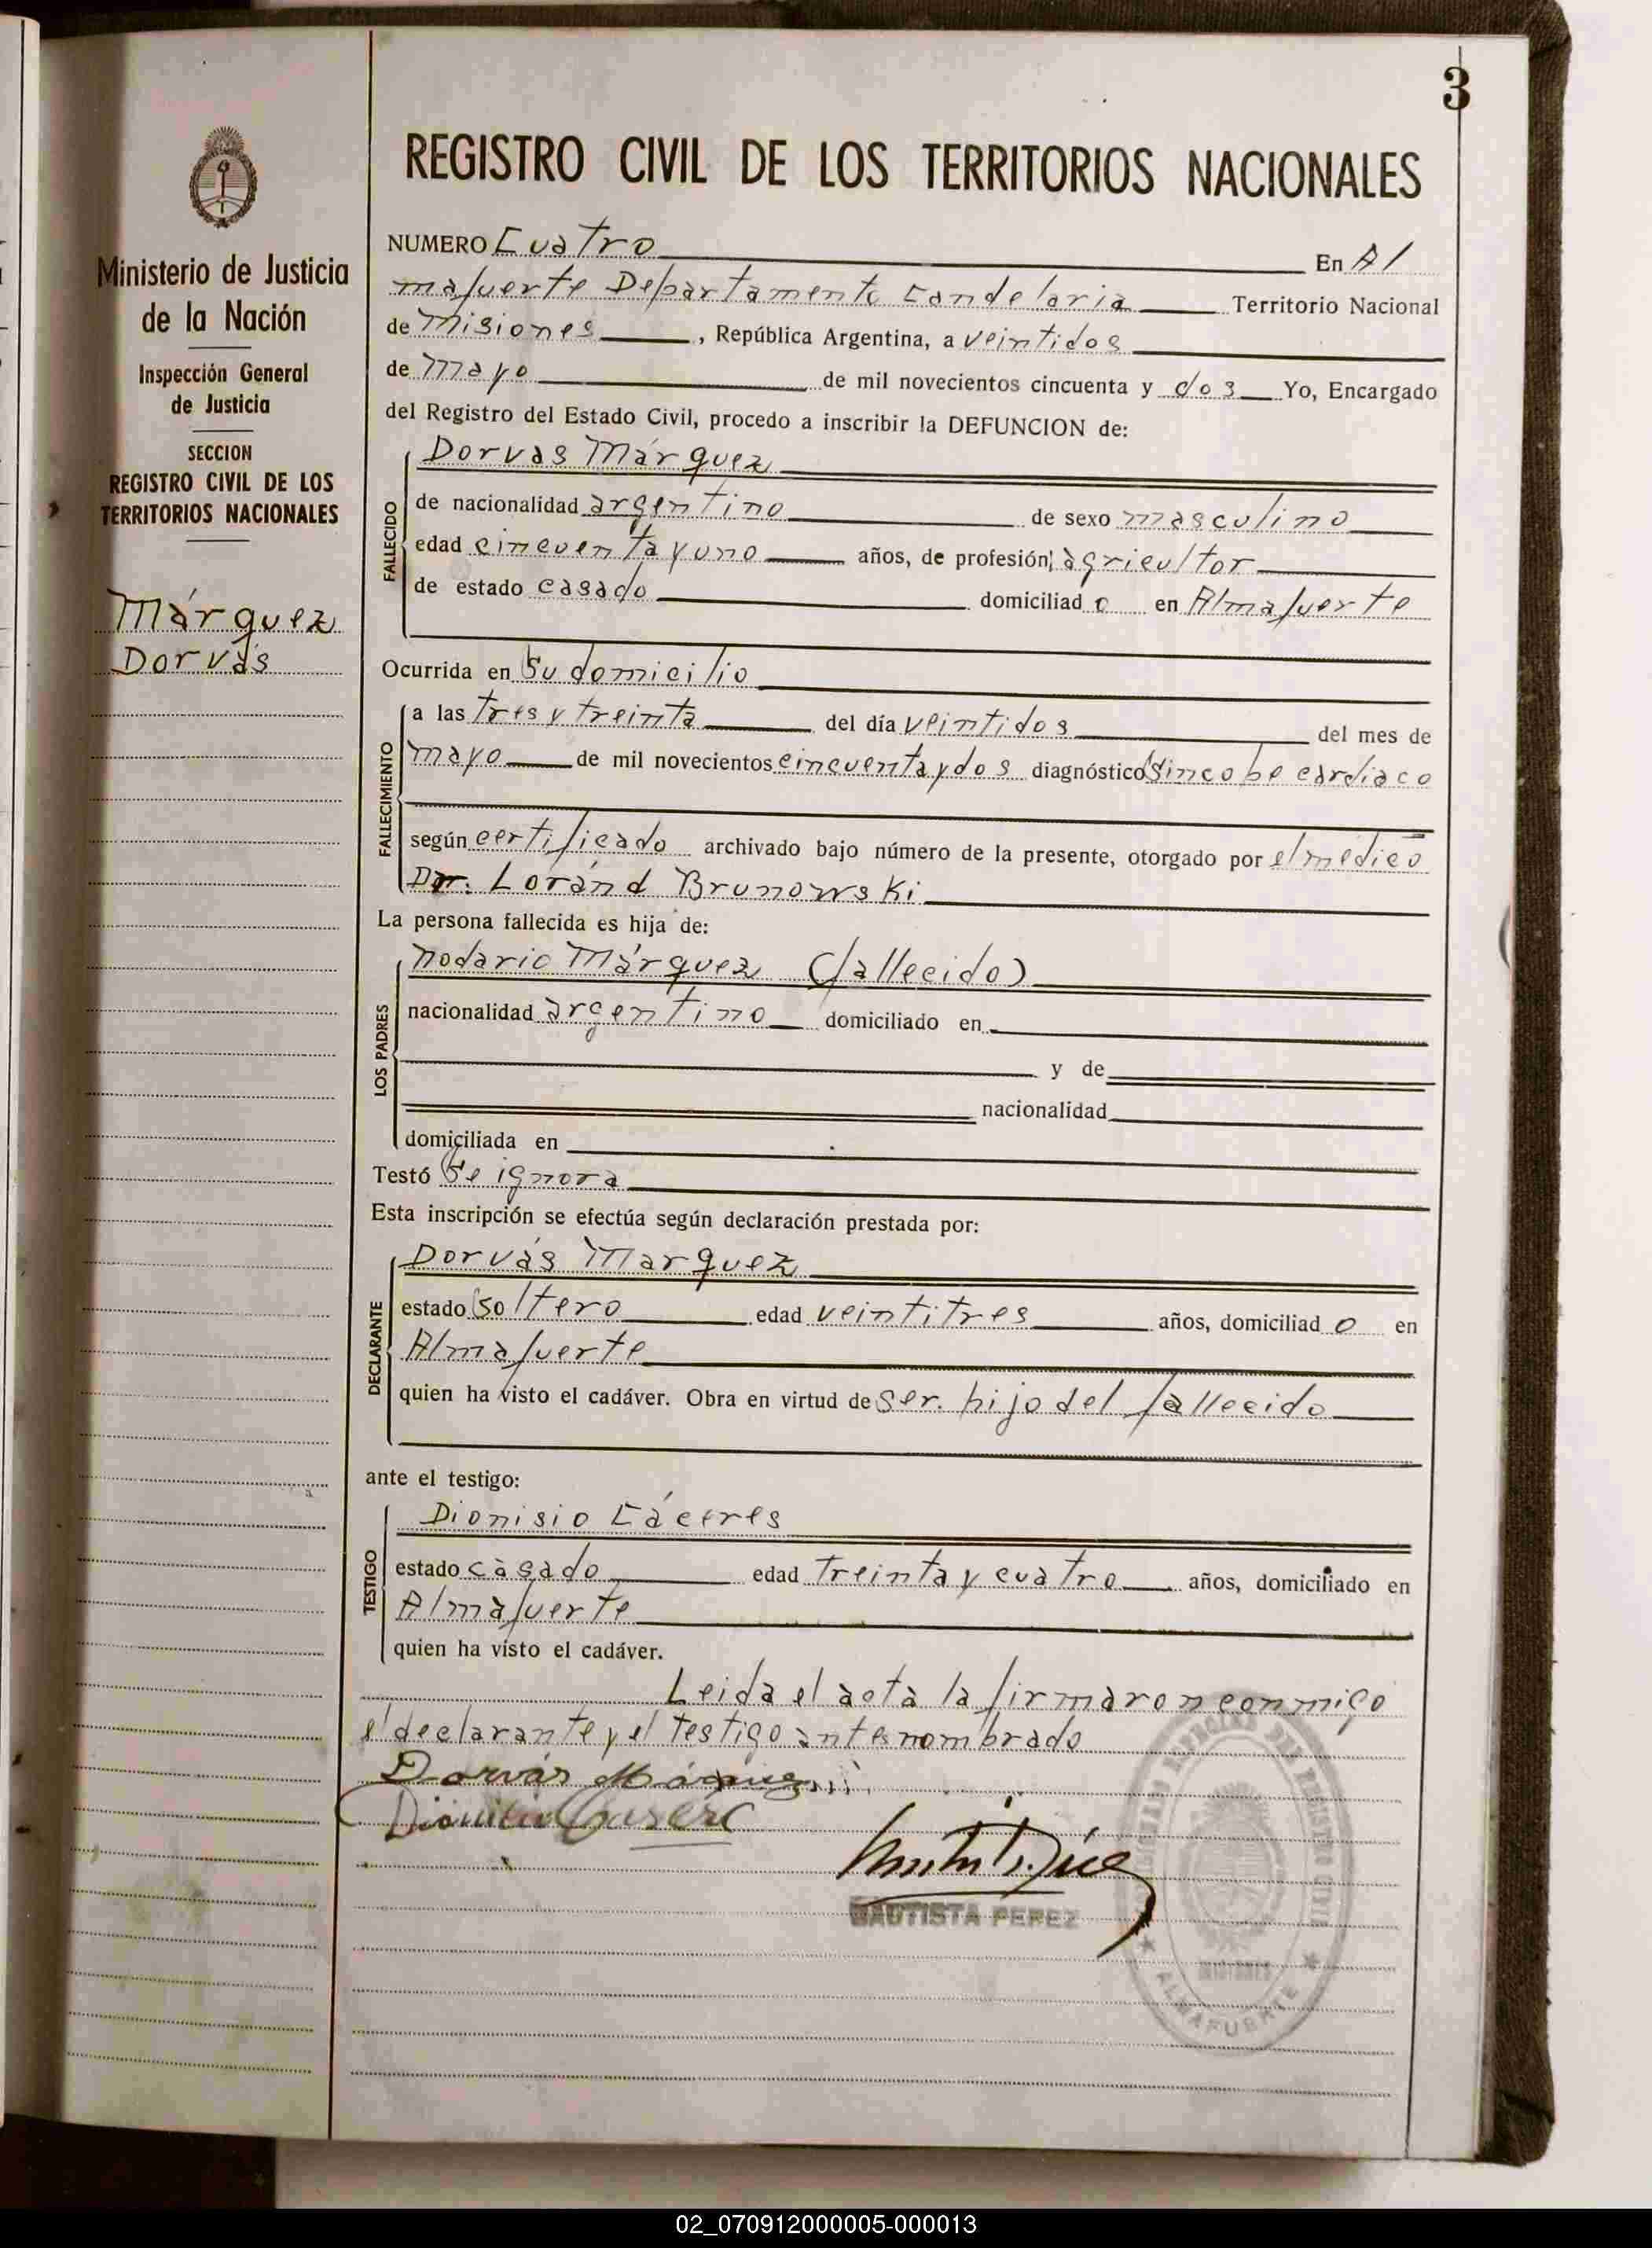 3
REGISTRO CIVIL DE LOS TERRITORIOS NACIONALES
Ministerio de Justicia
de la Nación
Inspección General
de Justicia
SECCION
REGISTRO CIVIL DE LOS
TERRITORIOS NACIONALES
Márquez
Dorvás
NUMERO Cuatro En Al
mafuerte Departamento Candelaria Territorio Nacional
de Misiones, República Argentina, a veintidos
de mayo de mil novecientos cincuenta y dos Yo, Encargado
del Registro del Estado Civil, procedo a inscribir la DEFUNCION de:
FALLECIDO
Dorvas Márquez
de nacionalidad argentino de sexo masculino
edad cincuenta y uno años, de profesión, agricultor
de estado casado domiciliad o en Almafuerte
Ocurrida en Su domicilio
FALLECIMIENTO
a las tres y treinta del día veintidos del mes de
mayo de mil novecientos cincuenta y dos diagnóstico Sincope cardiaco
según certificado archivado bajo número de la presente, otorgado por el medico
Dr. Loránd Brunowski
La persona fallecida es hija de:
LOS PADRES
nodario Márquez (fallecido)
nacionalidad argentino domiciliado en
y de
nacionalidad
domiciliada en
Testó Se ignora
Esta inscripción se efectúa según declaración prestada por:
DECLARANTE
Dorvás Marquez
estado Soltero edad veintitres años, domiciliad o en
Almafuerte
quien ha visto el cadáver. Obra en virtud de ser. hijo del fallecido
ante el testigo:
TESTIGO
Dionisio Cáceres
estado casado edad treinta y cuatro años, domiciliado en
Almafuerte
quien ha visto el cadáver.
Leida el acta la firmaron conmigo
el declarante y el testigo antes nombrado
Dorvás Márquez
BAUTISTA PEREZ
ALMAFUERTE
02_070912000005-000013